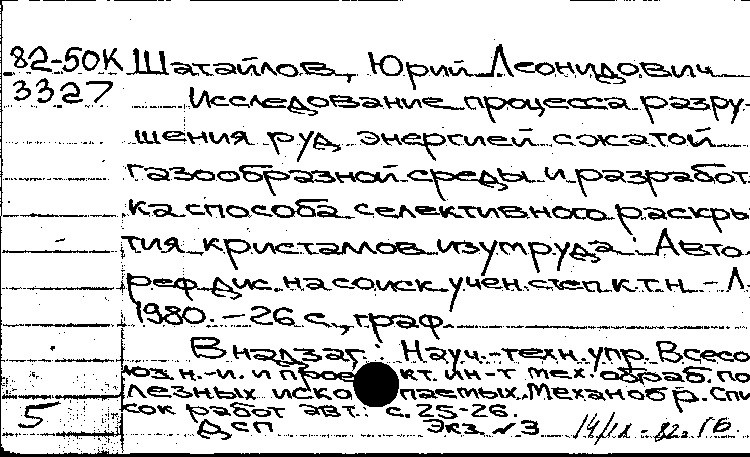 82-50К Шатайлов, Юрий Леонидович
3327 Исследование процесса разру-
шения руд энергией сжатой
газообразной среды и разработ
ка способа селективного раскры
тия кристаллов изумруда: Авто
реф. дис. на соиск. учен. степ. к.т.н. - Л.
1980. - 26 с., граф.
В надзаг: Науч.-техн. упр. Всесо
юз. н.-и. и прое кт. ин-т мех. обраб. по
лезных иско паемых. Механобр. Спи
5 сок работ авт.: с. 25-26.
ДСП Экз. №3 14/IX-82. ГБ.